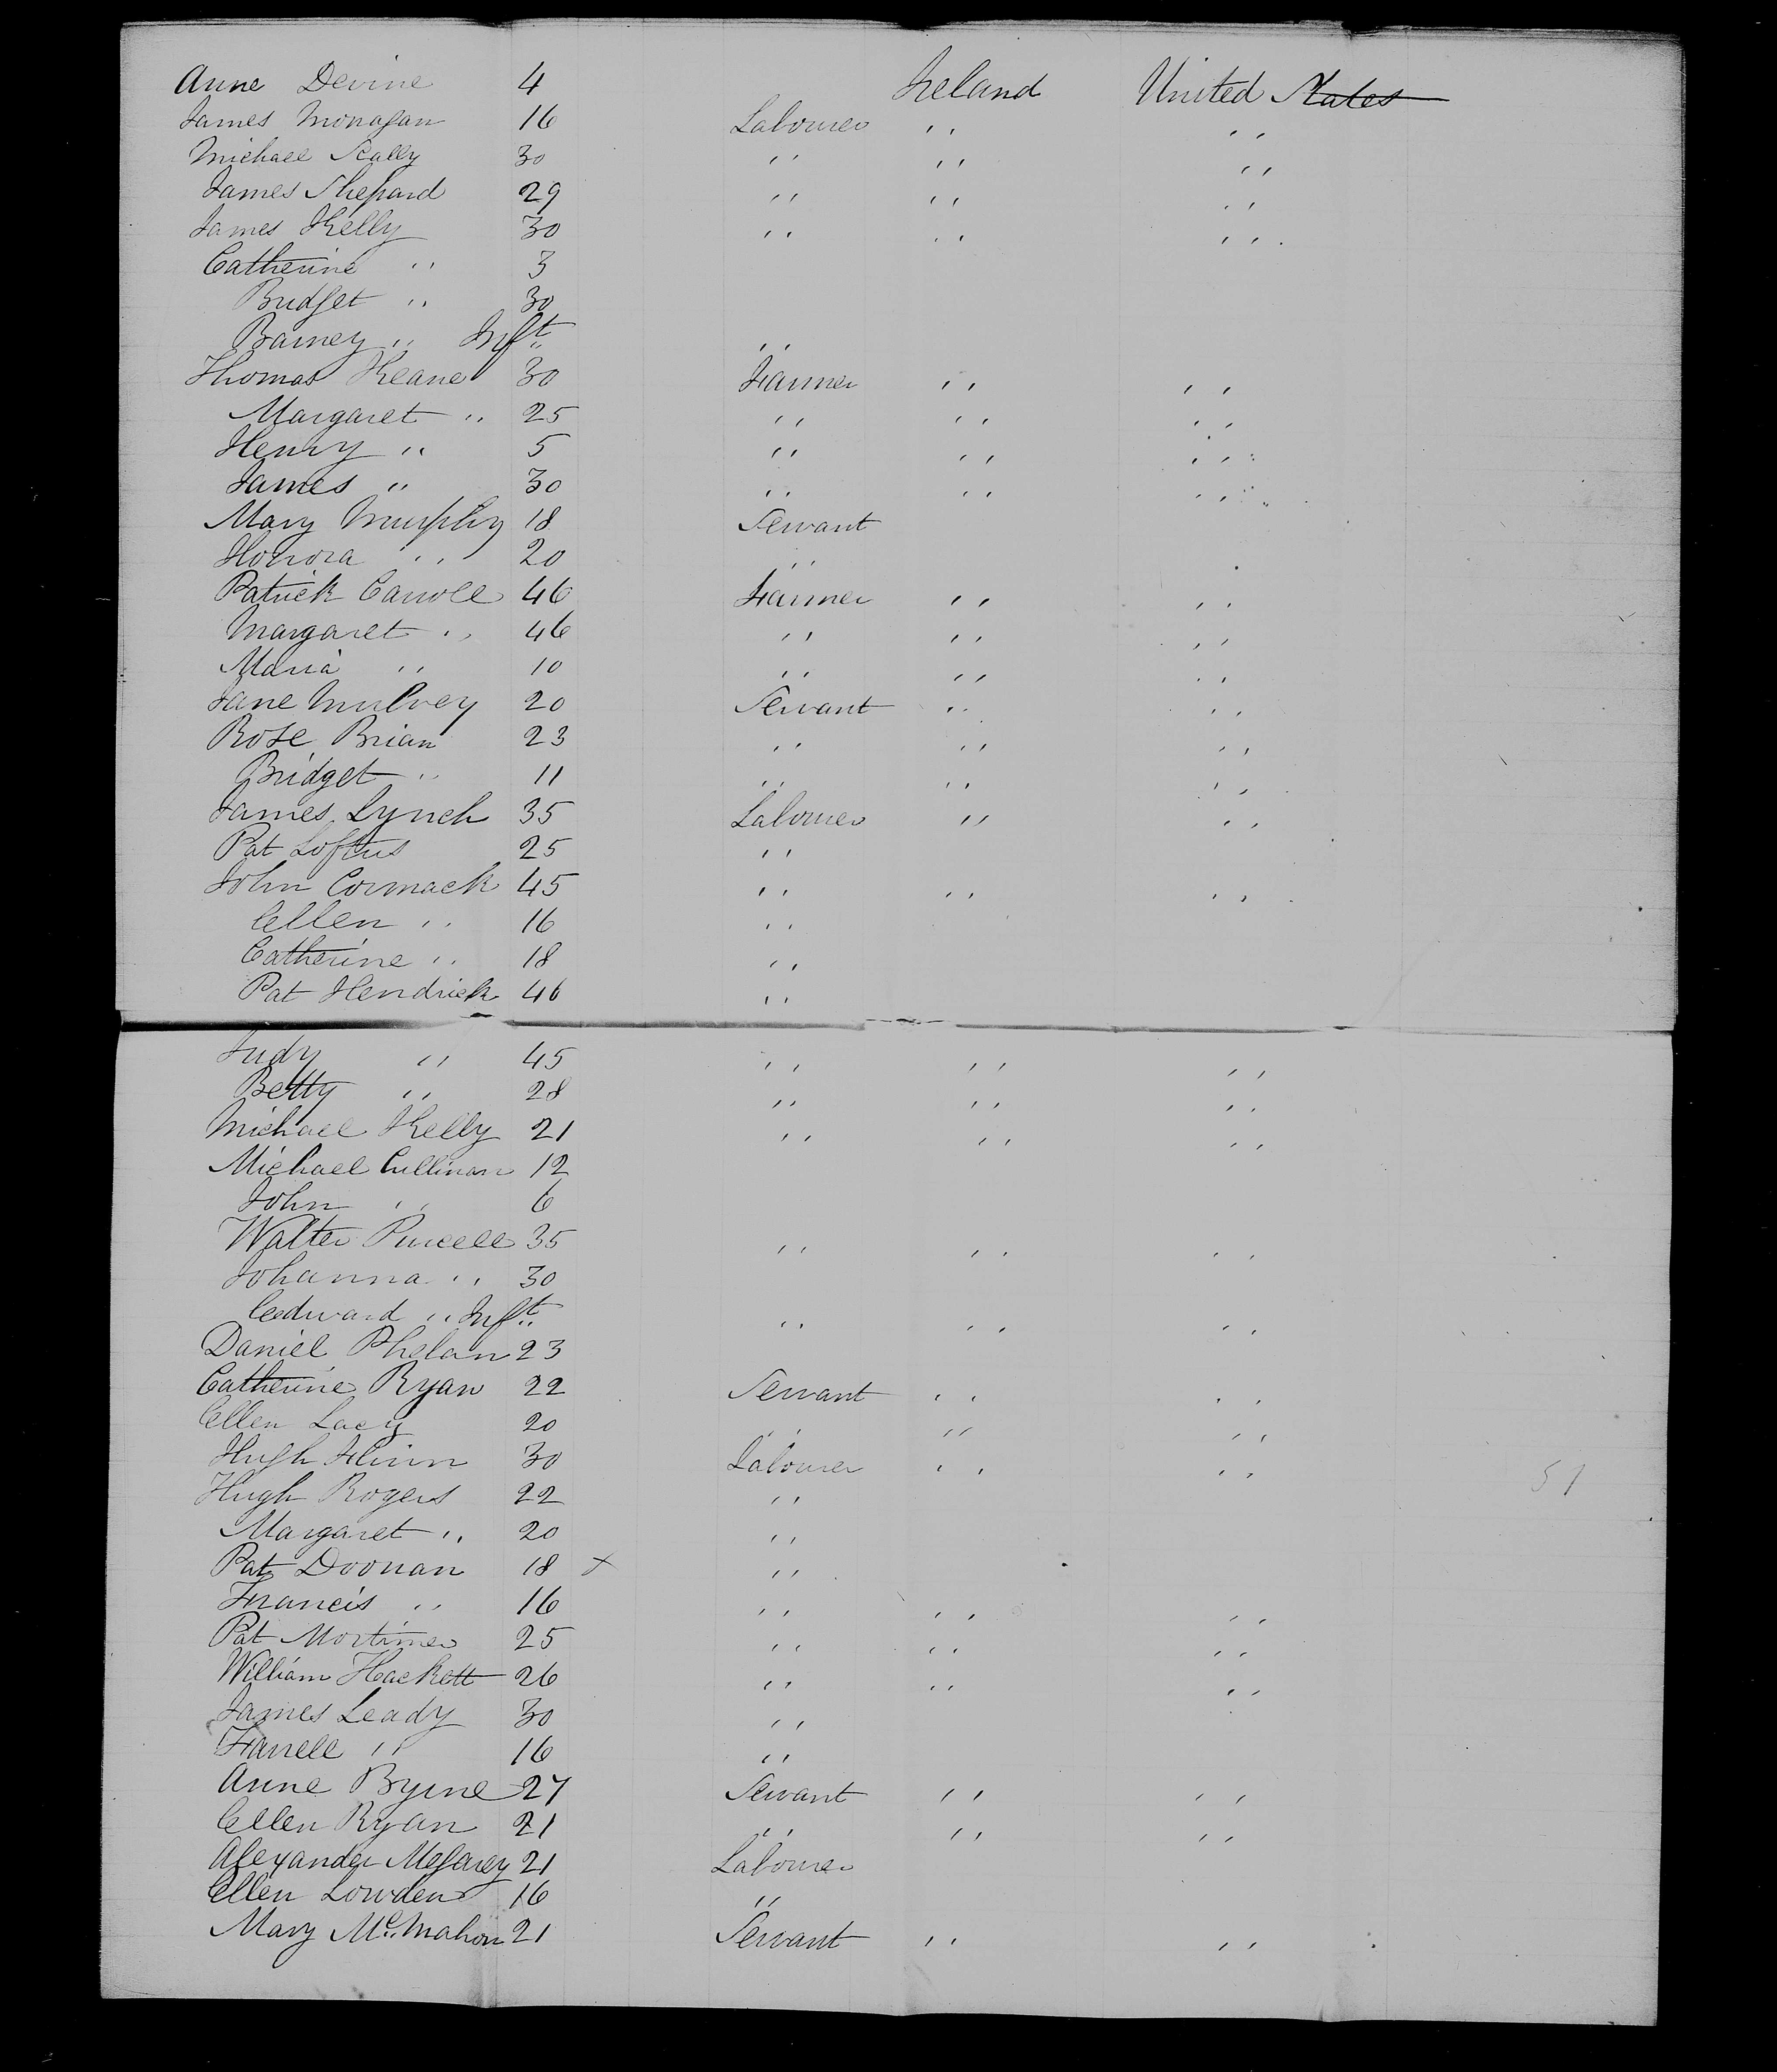 Anne Devine 4 Ireland United States
James Monagan 16 Labourer " "
Michael Scally 30 " " "
James Shepard 29 " " "
James Kelly 30 " " "
Catherine " 3
Bridget " 30
Barney " Inft "
Thomas Keane 30 Farmer " "
Margaret " 25 " " "
Henry " 5 " " "
James " 30 " " "
Mary Murphy 18 Servant
Honora " 20 "
Patrick Carroll 46 Farmer " "
Margaret " 46 " " "
Maria " 10 " " "
Jane Mulvey 20 Servant " "
Rose Brian 23 " " "
Bridget " 11 " " "
James Lynch 35 Labourer " "
Pat Loftus 25 "
John Cormack 45 " " "
Ellen " 16 "
Catherine " 18 "
Pat Hendrick 46 "
Judy " 45 " " "
Betty " 28 " " "
Michael Kelly 21 " " "
Michael Cullinan 12
John " 6
Walter Purcell 35 " " "
Johanna " 30
Edward " Inft " " "
Daniel Phelan 23
Catherine Ryan 22 Servant " "
Ellen Lacy 20 " " "
Hugh Flinn 30 Labourer " " 51
Hugh Rogers 22 "
Margaret " 20 "
Pat Doonan 18 x "
Francis " 16 " " "
Pat Mortimer 25 " " "
William Hackett 26 " " "
James Leady 30 "
Farrell " 16 "
Anne Byrne 27 Servant " "
Ellen Ryan 21 " " "
Alexander Megarey 21 Labourer
Ellen Lowden 16 "
Mary McMahon 21 Servant " "